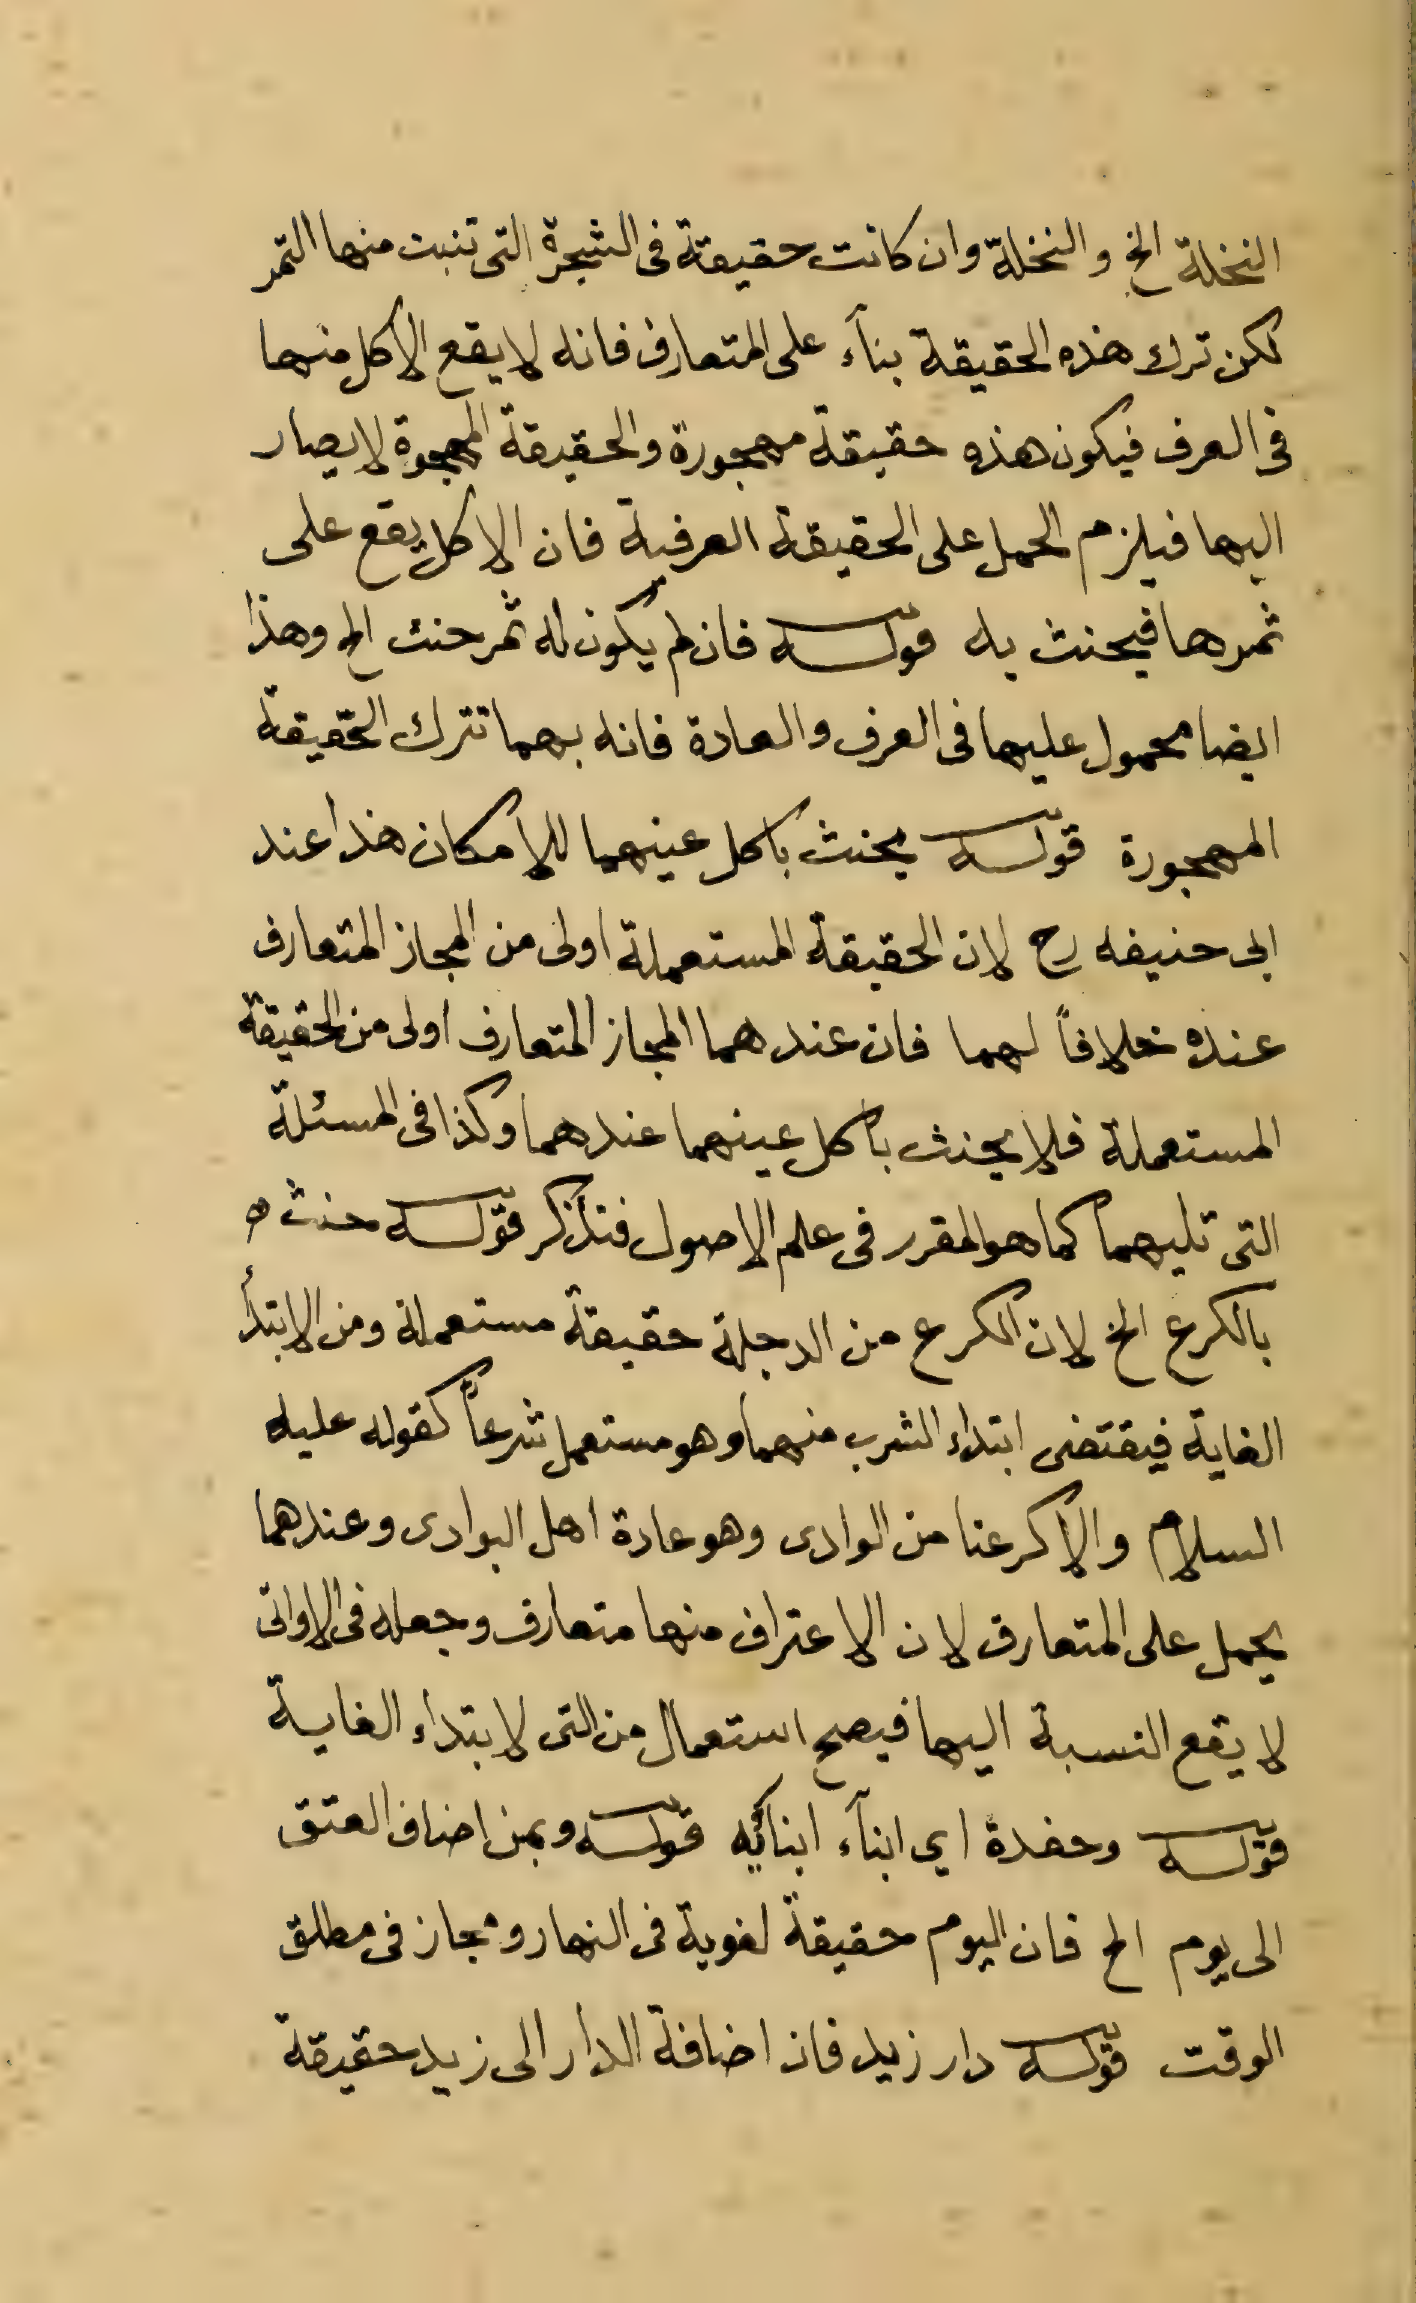 النخلة الخ والنخلة وان كانت حقيقة فى الشجرة التى تنبت منها التمر
لكن ترك هذه الحقيقة بنآء على المتعارف فانه لا يقع الاكل منها
فى العرف فيكون هذه حقيقة مهجورة والحقيقة المهجوة لا يصار
اليها فيلزم الحمل على الحقيقة العرفية فان الاكل يقع على
ثمرها فيحنث به قوله فان لم يكون له ثمر حنث الخ وهذا
ايضا محمول عليها فى العرف والعادة فانه بهما تترك الحقيقة
المهجورة قوله يحنث باكل عينهما للامكان هذا عند
ابى حنيفه رح لان الحقيقة المستعملة اولى من المجاز المتعارف
عنده خلافاً لهما فان عندهما المجاز المتعارف اولى من الحقيقة
المستعملة فلا يحنث باكل عينهما عندهما وكذا فى المسئلة
التى تليهما كما هو المقرر فى علم الاصول فتذكر قوله حنث ه
بالكرع الخ لان الكرع من الدجلة حقيقة مستعملة ومن الابتدأ
الغاية فيقتضى ابتداء الشرب منهما وهو مستعمل شرعاً كقوله عليه
السلام والا كرعنا من الوادى وهو عادة اهل البوادى وعندهما
يحمل على المتعارف لان الاعتراف منها متعارف وجعله فى الاوانى
لا يقع النسبة اليها فيصح استعمال من التى لابتداء الغاية
قوله وحفدة اي ابنآء ابنائه قوله وبمن اضاف العتق
الى يوم الخ فان اليوم حقيقة لغوية فى النهار ومجاز فى مطلق
الوقت قوله دار زيد فان اضافة الدار الى زيد حقيقة